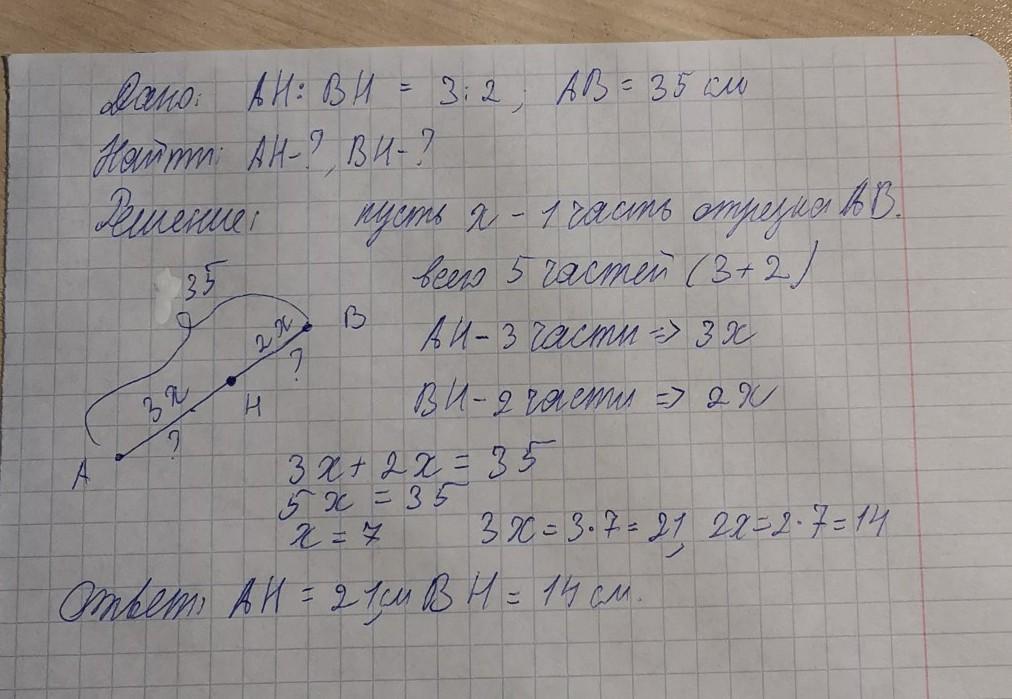 Дано: АН : ВН = 3:2 ; АВ = 35 см
Найти: АН-?, ВН-?
Решение: пусть х - 1 часть отрезка АВ.
всего 5 частей (3+2)
АН - 3 части => 3х
ВН - 2 части => 2х
35
2х
В
?
3х
Н
?
А
3х + 2х = 35
5х = 35
х = 7 3х = 3·7 = 21, 2х = 2·7 = 14
Ответ: АН = 21см, ВН = 14 см.